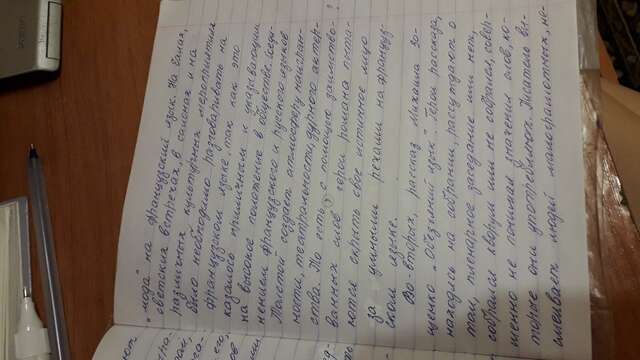 "мода" на французский язык. На балах,
светских встречах, в салонах и на
различных культурных мероприятиях
было необходимо разговаривать на
французском языке, так как это
казалось приличным и указывающим
на высокое положение в обществе. Соеди-
нением французского и русского языков
Толстой создаёт атмосферу неискрен-
ности, театральности, дурного актёр-
ства. То есть, с помощью заимство-
ванных слов герои романа пыта-
ются скрыть своё истинное лицо
за умными речами на француз-
ском языке.
Во-вторых, рассказ Михаила Зо-
щенко "Обезьяний язык". Герои рассказа,
находясь на собрании, рассуждают о
том, пленарное заседание или нет,
собрался кворум или не собрался, совер-
шенно не понимая значения слов, ко-
торые они употребляют. Писатель вы-
смеивает людей малограмотных, не-